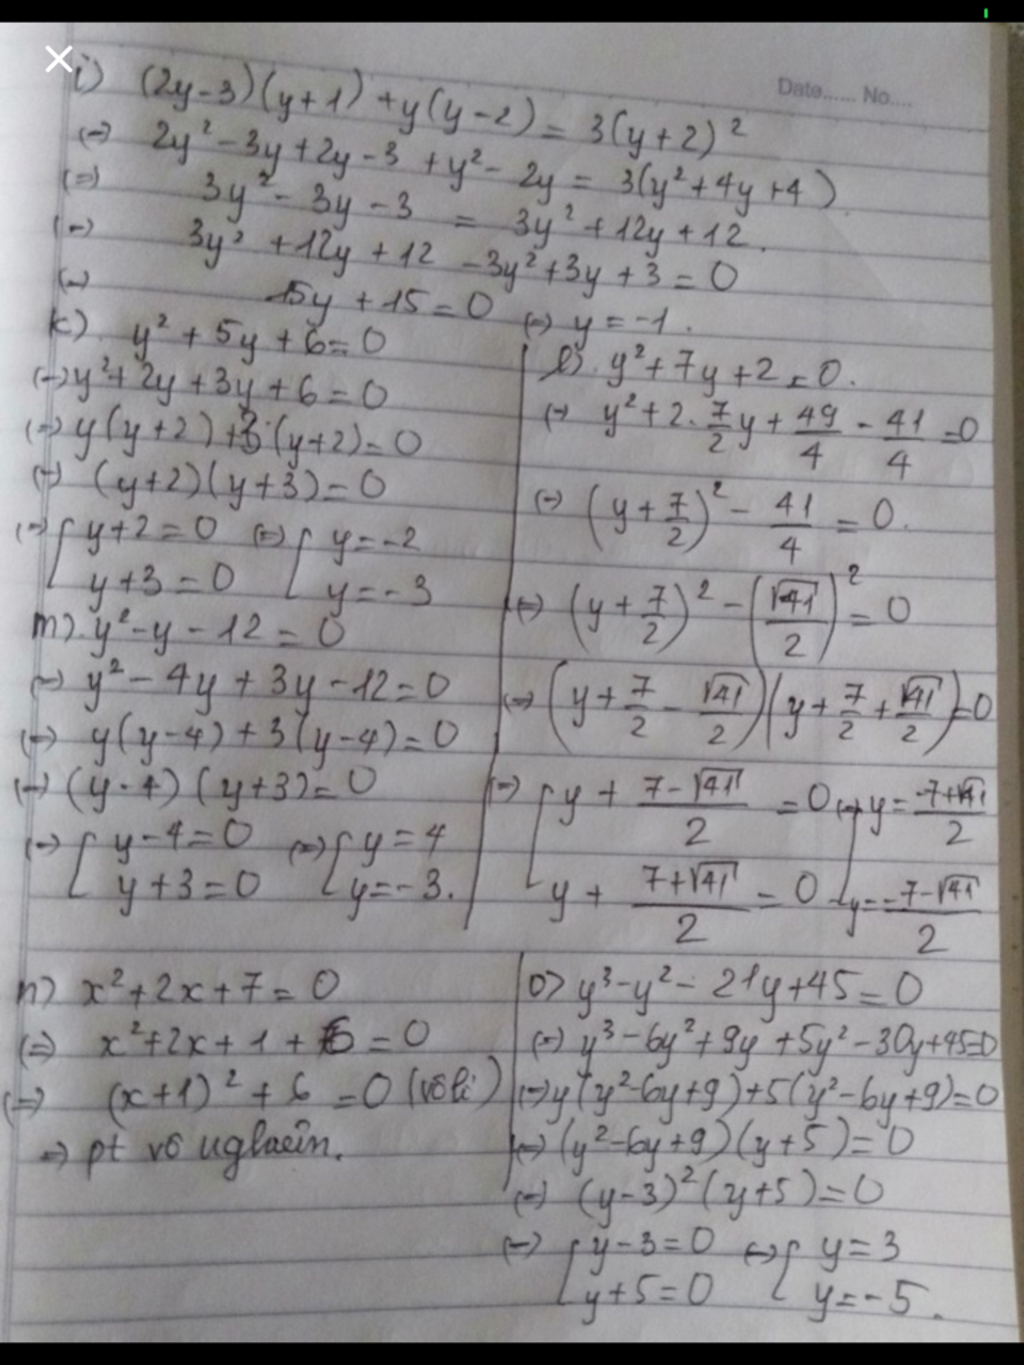 Date...... No....
i) (2y-3)(y+1) + y(y-2) = 3(y+2)²
(=) 2y² - 3y + 2y - 3 + y² - 2y = 3(y² + 4y + 4)
(=) 3y² - 3y - 3 = 3y² + 12y + 12.
(=) 3y² + 12y + 12 - 3y² + 3y + 3 = 0
(=) 15y + 15 = 0 (=) y = -1.
k). y² + 5y + 6 = 0
(=) y² + 2y + 3y + 6 = 0
(=) y(y+2) + 3(y+2) = 0
(=) (y+2)(y+3) = 0
(=) [ y+2 = 0 (=) [ y = -2
y+3 = 0 y = -3
m). y² - y - 12 = 0
(=) y² - 4y + 3y - 12 = 0
(=) y(y-4) + 3(y-4) = 0
(=) (y-4)(y+3) = 0
(=) [ y-4 = 0 (=) [ y = 4
y+3 = 0 y = -3.
l). y² + 7y + 2 = 0.
(=) y² + 2. 7/2 y + 49/4 - 41/4 = 0
(=) (y + 7/2)² - 41/4 = 0.
(=) (y + 7/2)² - (√41/2)² = 0
(=) (y + 7/2 - √41/2)(y + 7/2 + √41/2) = 0
(=) [ y + 7-√41/2 = 0 (=) [ y = -7+√41/2
y + 7+√41/2 = 0 y = -7-√41/2
n) x² + 2x + 7 = 0
(=) x² + 2x + 1 + 6 = 0
(=) (x+1)² + 6 = 0 (vô lí)
=) pt vô nghiệm.
o) y³ - y² - 21y + 45 = 0
(=) y³ - 6y² + 9y + 5y² - 30y + 45 = 0
(=) y(y² - 6y + 9) + 5(y² - 6y + 9) = 0
(=) (y² - 6y + 9)(y + 5) = 0
(=) (y-3)²(y+5) = 0
(=) [ y-3 = 0 (=) [ y = 3
y+5 = 0 y = -5.